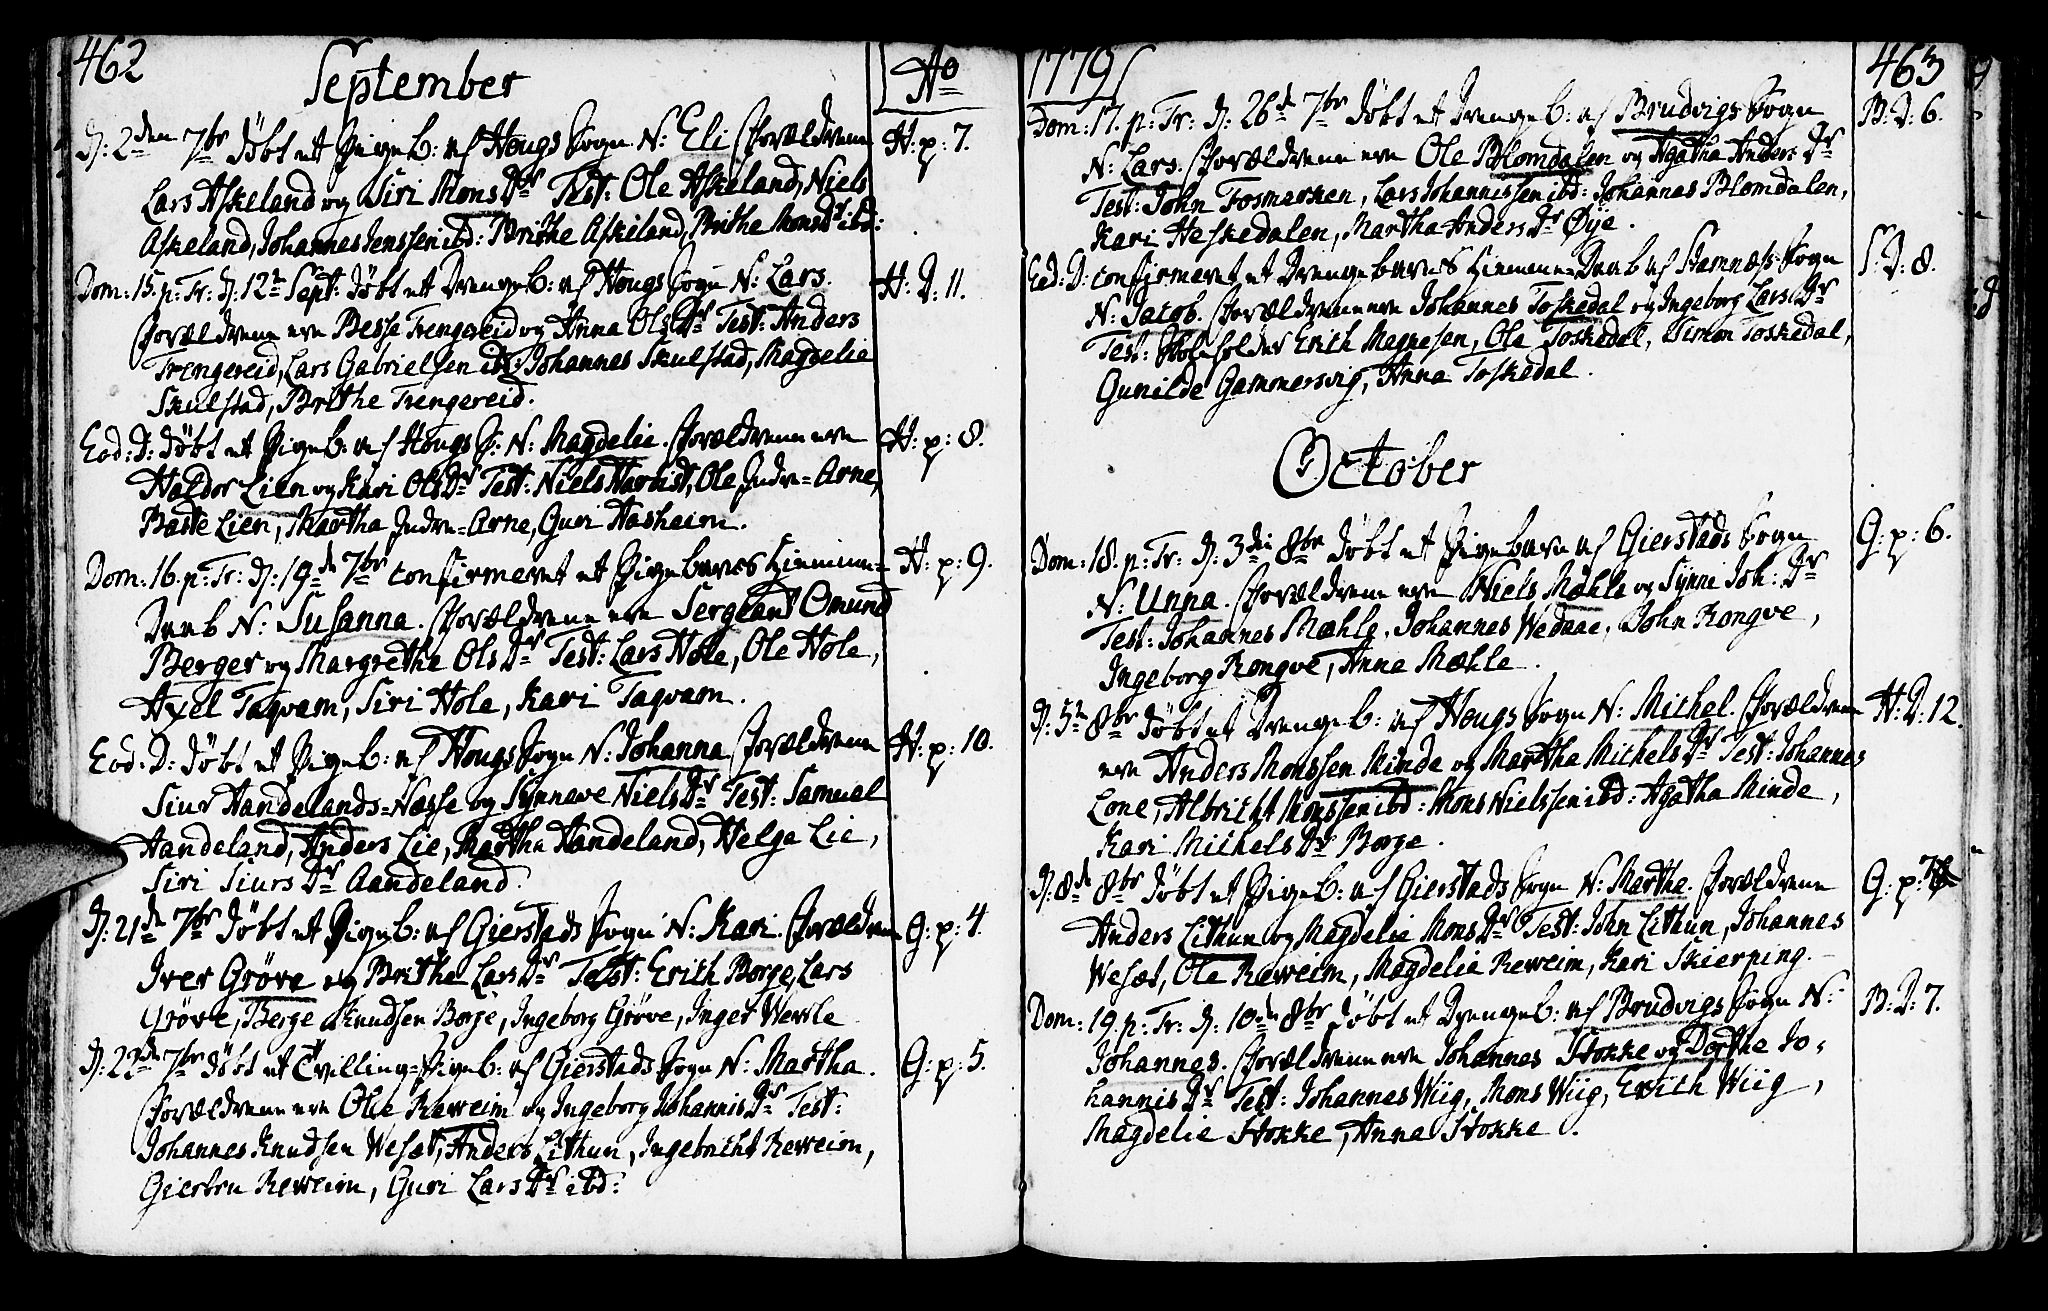 462
September
Ao
D: 2den 7br döbt et Pigeb: af Hougs Sogn N: Eli Forældrene
H: p: 7.
Lars Askeland og Siri Mons Dr Test: Ole Askeland, Niels
Askeland, Johannes Jenssen ibd: Brithe Askeland, Brithe Mons Dr ibd:
Dom: 15. p: Tr: D: 12te Sept: döbt et Drengeb: af Hougs Sogn N: Lars.
H: D: 11.
Forældrene ere Besse Trengereid og Anna Ols Dr Test: Anders
Trengereid, Lars Gabrielsen ibd: Johannes Skulstad, Magdelie
Skulstad, Brithe Trengereid.
Eod: D: döbt et Pigeb: af Hougs S: N: Magdelie. Forældrene ere
H: p: 8.
Haldor Lien og Kari Ols Dr Test: Niels Ole Indre=Arne,
Baste Lien, Martha Indre=Arne, Guri Aasheim.
Dom: 16. p: Tr: D: 19de 7br confirmeret et Pigebarns Hiemme=
H: p: 9.
Daab N: Susanna. Forældrene ere Sergeant Omund
Berger og Margrethe Ols Dr Test: Lars Hole, Ole Hole,
Axel Taqvam, Siri Hole, Kari Taqvam.
Eod: D: döbt et Pigeb: af Hougs Sogn N: Johanna Forældrene
H: p: 10.
Siur Aandelands=Næsse og Synneve Niels Dr Test: Samuel
Aandeland, Anders Lie, Martha Aandeland, Helge Lie,
Siri Siurs Dr Aandeland.
D: 21de 7br döbt et Pigeb: af Gierstads Sogn N: Kari. Forældrene
G: p: 4.
Iver Gröve og Brithe Lars Dr Test: Erich Borge, Lars
Gröve, Berge Knudsen Borge, Ingeborg Gröve, Inger Wevle
D: 22de 7br döbt et Tvilling=Pigeb: af Gierstads Sogn N: Martha.
G: p: 5.
Forældrene ere Olie Reweim og Ingeborg Johannis Dr Test:
Johannes Knudsen Wesæt, Anders Lithun, Ingebricht Reweim,
Giertru Reweim, Guri Lars Dr ibd:
1779
463
Dom: 17. p: Tr: D: 26de 7br döbt et Drengeb: af Brudvigs Sogn
B: D: 6.
N: Lars. Forældrene ere Ole Blomdalen og Agatha Anders Dr
Test: John Fosmarken, Lars Johannessen ibd: Johannes Blomdalen,
Kari Heskedalen, Martha Anders Dr Öÿe.
Eod: D: confirmeret et Drengebarns Hiemme=Daab af Stamnæs Sogn
S: D: 8.
N: Jacob. Forældrene ere Johannes Toskedal og Ingeborg Lars Dr
Test: Skoleholder Erich Magnesen, Ole Toskedal, Simon Toskedal,
Gunilde Gammersvig, Anna Toskedal.
October
Dom: 18. p: Tr: D: 3die 8br döbt et Pigebarn af Gierstads Sogn
G: p: 6.
N: Unna. Forældrene ere Niels Mæhle og Synni Joh: Dr
Test: Johannes Mæhle, Johannes Wedaae, John Rongve,
Ingeborg Rongve, Anna Mæhle.
D: 5te 8br döbt et Drengeb: af Hougs Sogn N: Michel. Forældrene
H: D: 12.
ere Anders Monssen Minde og Martha Michels Dr Test: Johannes
Lone, Albricht Monssen ibd: Mons Nielssen ibd: Agatha Minde,
Kari Michels Dr Borge.
D: 8de 8br döbt et Pigeb: af Gierstads Sogn N: Martha. Forældrene
G: p: 7
Anders Lithun og Magdelie Mons Dr Test: John Lithun, Johannes
Wesæt, Ole Reweim, Magdelia Reweim, Kari Skierping.
Dom: 19. p: Tr: D: 10de 8br döbt et Drengeb: af Brudvigs Sogn N:
B: D: 7.
Johannes. Forældrene ere Johannes Stokke og Dorthe Jo=
hannis Dr Test: Johannes Wiig, Mons Wiig, Erich Wiig,
Magdelie Stokke, Anna Stokke.